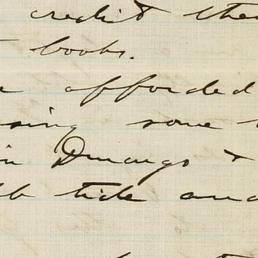 credit the
books.
afforded
sing some
in Durango &
tide and